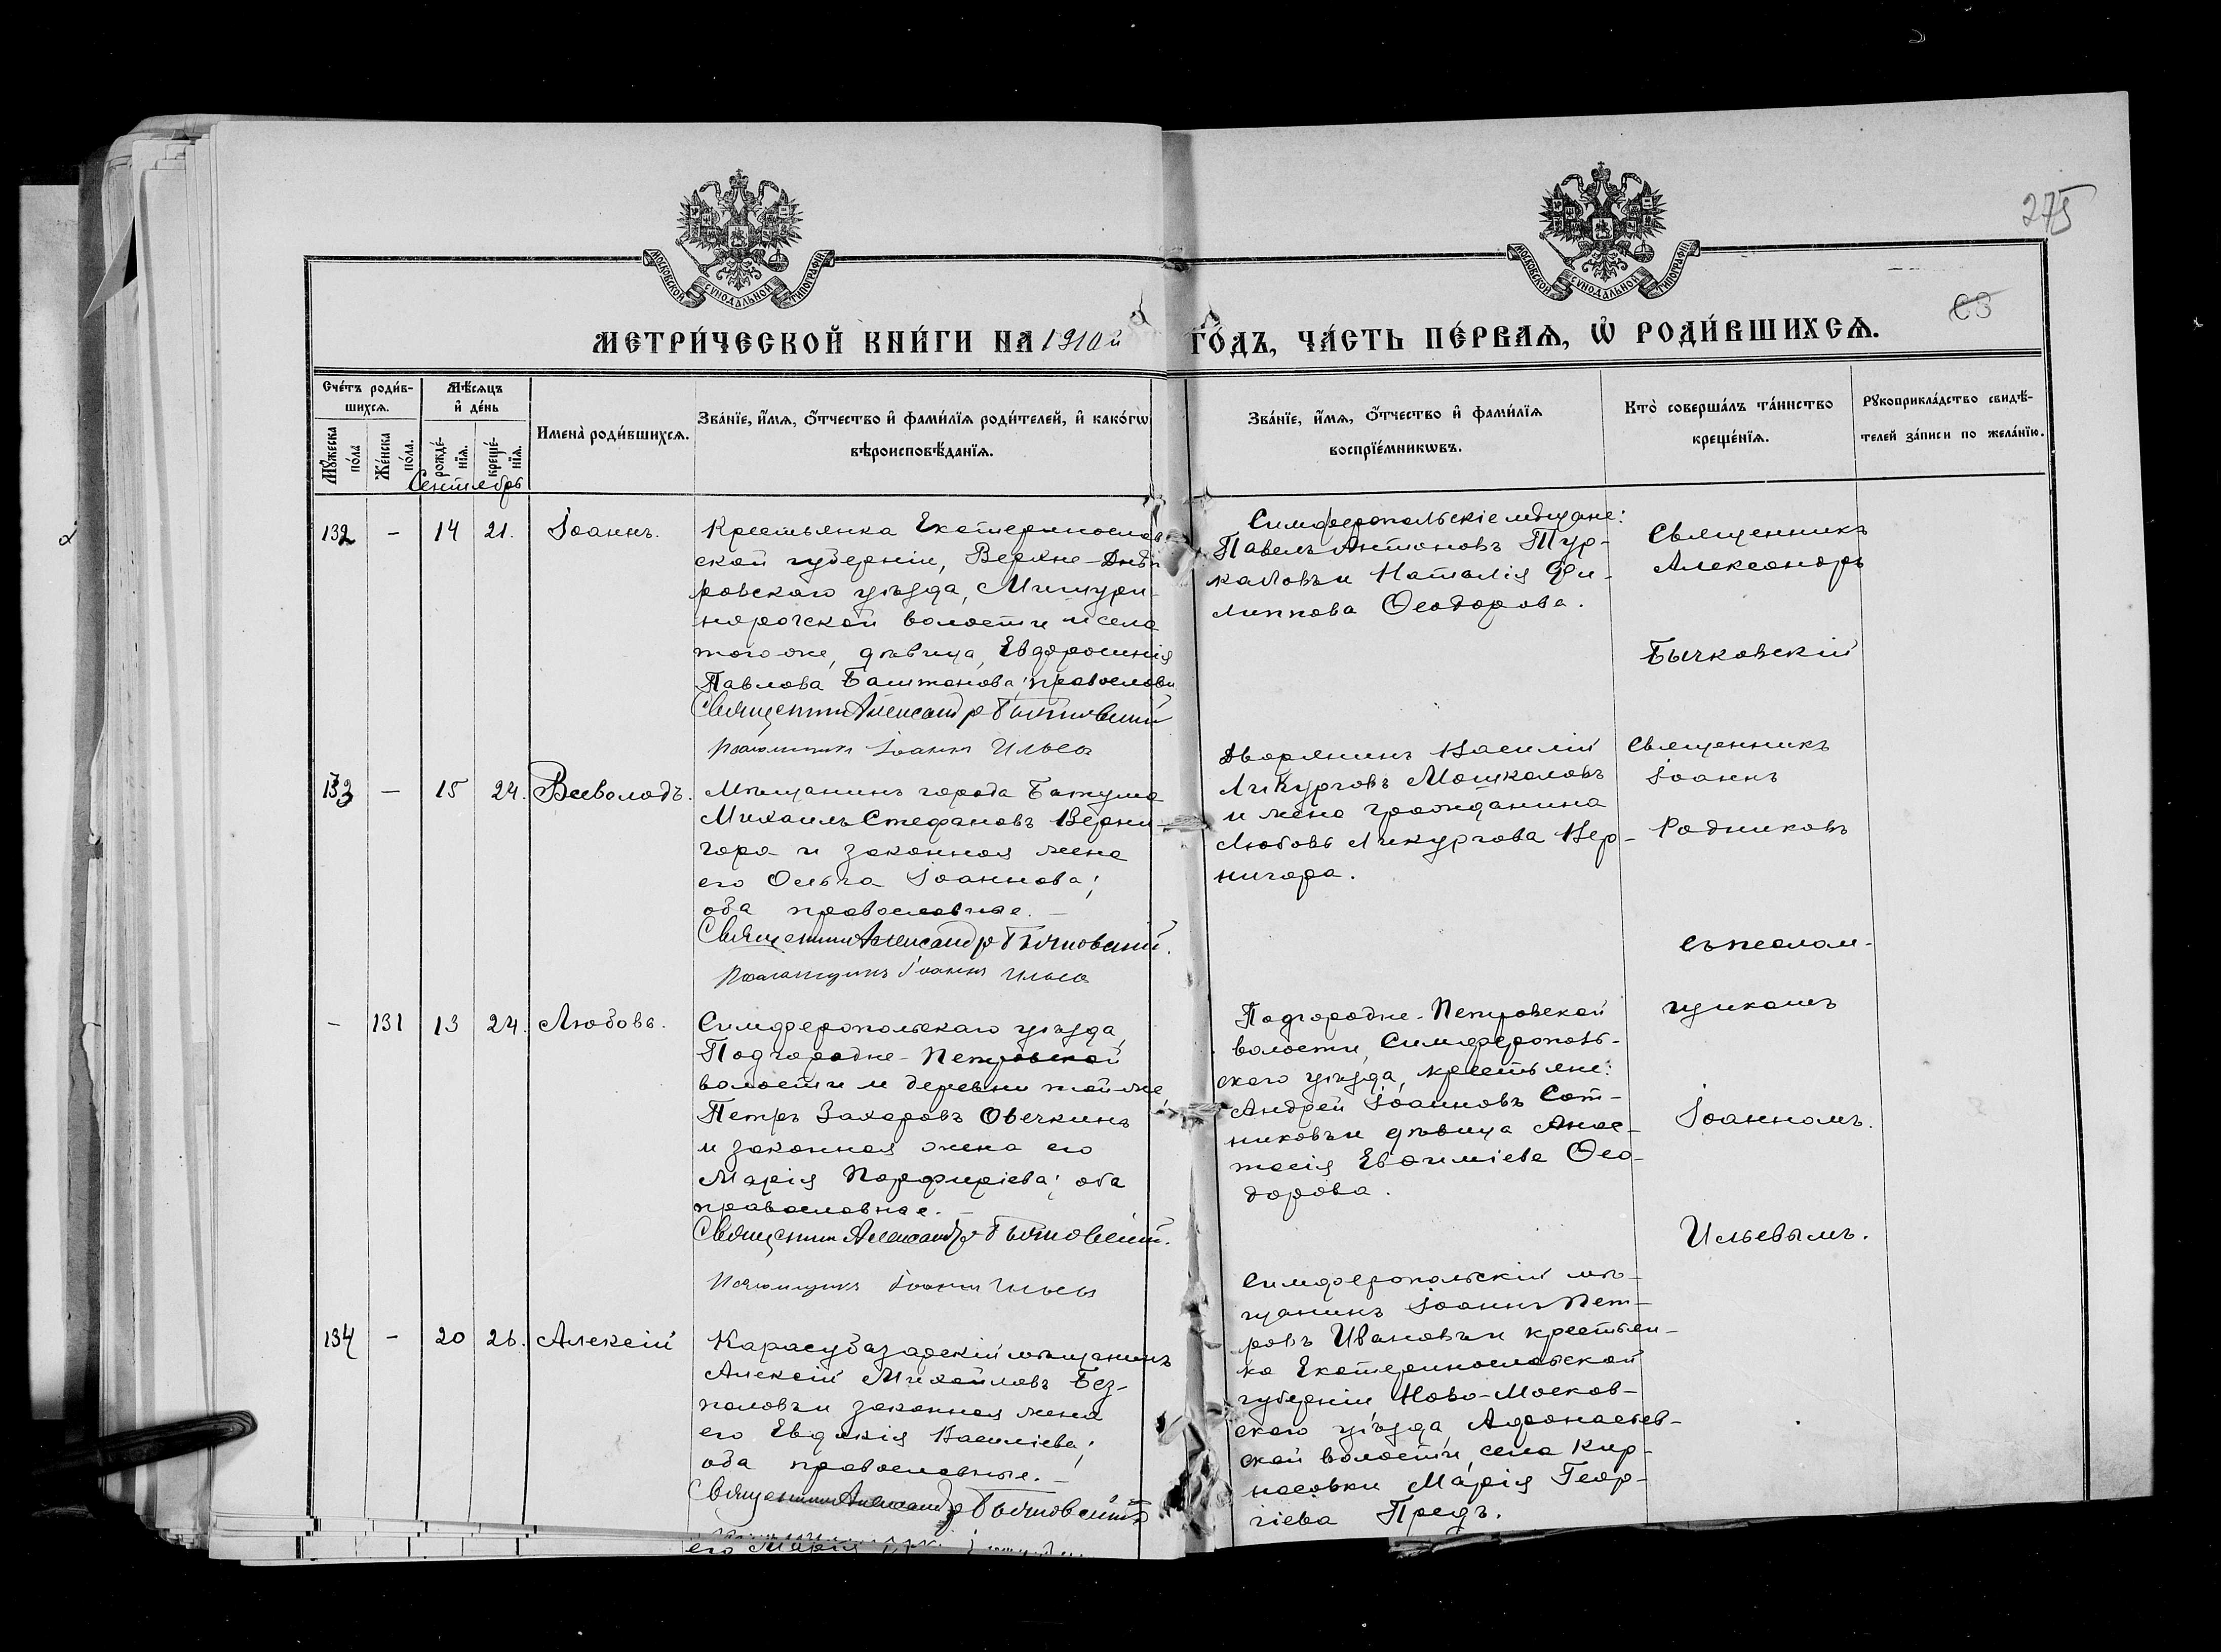 275
МОСКОВСКОЙ СѴНОДАЛЬНОЙ ТИПОГРАФІИ
МОСКОВСКОЙ СѴНОДАЛЬНОЙ ТИПОГРАФІИ
МЕТРИ́ЧЕСКОЙ КНИ́ГИ НА 1910й ГО́ДЪ, ЧА́СТЬ ПЕ́РВАѦ, Ѡ҆ РОДИ́ВШИХСѦ.
Сче́тъ роди́в-
шихсѧ.
Мꙋ́жеска
по́ла
Же́нска
по́ла.
Мѣ́сѧцъ
и҆ де́нь
рожде́-
нїѧ.
креще́-
нїѧ.
Имена̀ роди́вшихсѧ.
Зва́нїе, и҆́мѧ, ѻ҆́тчество и҆ фами́лїѧ роди́телей, и҆ како́гѡ
вѣроисповѣ́данїѧ.
Зва́нїе, и҆́мѧ, ѻ҆́тчество и҆ фами́лїѧ
воспрїе́мникѡвъ.
Кто̀ соверша́лъ та́инство
креще́нїѧ.
Рꙋкоприкла́дство свидѣ́-
телей за́писи по жела́нїю.
Сентябрь
132
-
14
21.
Іоаннъ.
Крестьянка Екатеринослав
ской губерніи, Верхне-Днѣп
ровскаго уѣзда, Мишури-
норогской волости и села
того-же, дѣвица, Евфросинія
Павлова Баштанова; православн
Священник Александр Бычковский
Псаломщикъ Іоаннъ Ильевъ
Симферопольскіе мѣщане:
Павелъ Антоновъ Тур-
каловъ и Наталія Фи-
липпова Ѳеодорова.
Священникъ
Александръ
Бычковскій
133
-
15
24.
Всеволодъ.
Мѣщанинъ города Батума
Михаилъ Стефановъ Верни-
гора и законная жена
его Ольга Іоаннова;
оба православные.
Священник Александр Бычковский.
Псаломщикъ Іоаннъ Ильевъ
Дворянинъ Василій
Ликурговъ Машкаловъ
и жена гражданина
Любовь Ликургова Вер-
нигора.
Священникъ
Іоаннъ
Родниковъ
съ псалом-
щикомъ
Іоанномъ.
Ильевымъ.
-
131
13
24.
Любовь.
Симферопольскаго уѣзда,
Подгородне-Петровской
волости и деревни той-же,
Петръ Захаровъ Овечкинъ
и законная жена его
Марія Порфиріева; оба
православные.
Священник Александр Бычковский.
Псаломщикъ Іоаннъ Ильевъ
Подгородне-Петровской
волости, Симферополь-
скаго уѣзда, крестьяне:
Андрей Іоанновъ Сот-
никовъ и дѣвица Анас-
тасія Евѳиміева Ѳео-
дорова.
134
-
20
26.
Алексій
Карасубазарскій мѣщанинъ
Алексій Михайловъ Без-
паловъ и законная жена
его Евдокія Василіева;
оба православные.
Священник Александр Бычковский
Симферопольскій мѣ-
щанинъ Іоаннъ Пет-
ровъ Ивановъ и крестьян-
ка Екатеринославской
губерніи, Ново-Москов-
скаго уѣзда, Афонасьев-
ской волости, села Кир-
насовки Марія Геор-
гіева Предъ.
его Марія